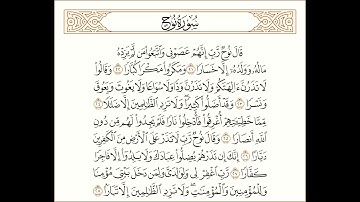 سُورَةُ نُوحٍ
قَالَ نُوحٌ رَّبِّ إِنَّهُمْ عَصَوْنِي وَاتَّبَعُوا مَن لَّمْ يَزِدْهُ
مَالُهُ وَوَلَدُهُ إِلَّا خَسَارًا ٢١ وَمَكَرُوا مَكْرًا كُبَّارًا ٢٢ وَقَالُوا
لَا تَذَرُنَّ آلِهَتَكُمْ وَلَا تَذَرُنَّ وَدًّا وَلَا سُوَاعًا وَلَا يَغُوثَ وَيَعُوقَ
وَنَسْرًا ٢٣ وَقَدْ أَضَلُّوا كَثِيرًا وَلَا تَزِدِ الظَّالِمِينَ إِلَّا ضَلَالًا ٢٤
مِّمَّا خَطِيئَاتِهِمْ أُغْرِقُوا فَأُدْخِلُوا نَارًا فَلَمْ يَجِدُوا لَهُم مِّن دُونِ
اللَّهِ أَنصَارًا ٢٥ وَقَالَ نُوحٌ رَّبِّ لَا تَذَرْ عَلَى الْأَرْضِ مِنَ الْكَافِرِينَ
دَيَّارًا ٢٦ إِنَّكَ إِن تَذَرْهُمْ يُضِلُّوا عِبَادَكَ وَلَا يَلِدُوا إِلَّا فَاجِرًا
كَفَّارًا ٢٧ رَّبِّ اغْفِرْ لِي وَلِوَالِدَيَّ وَلِمَن دَخَلَ بَيْتِيَ مُؤْمِنًا
وَلِلْمُؤْمِنِينَ وَالْمُؤْمِنَاتِ وَلَا تَزِدِ الظَّالِمِينَ إِلَّا تَبَارًا ٢٨